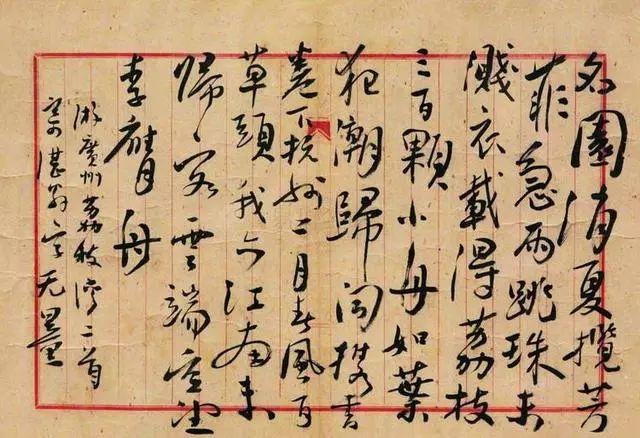 名園消夏攬芳
菲急雨跳珠未
濺衣載得荔枝
三百顆小舟如葉
犯潮歸閑携書
卷下杭州二月春風百
草頭我亦江南未
歸客雲端重望
李膺舟
游廣州荔枝灣二首
寄湛翁 无量